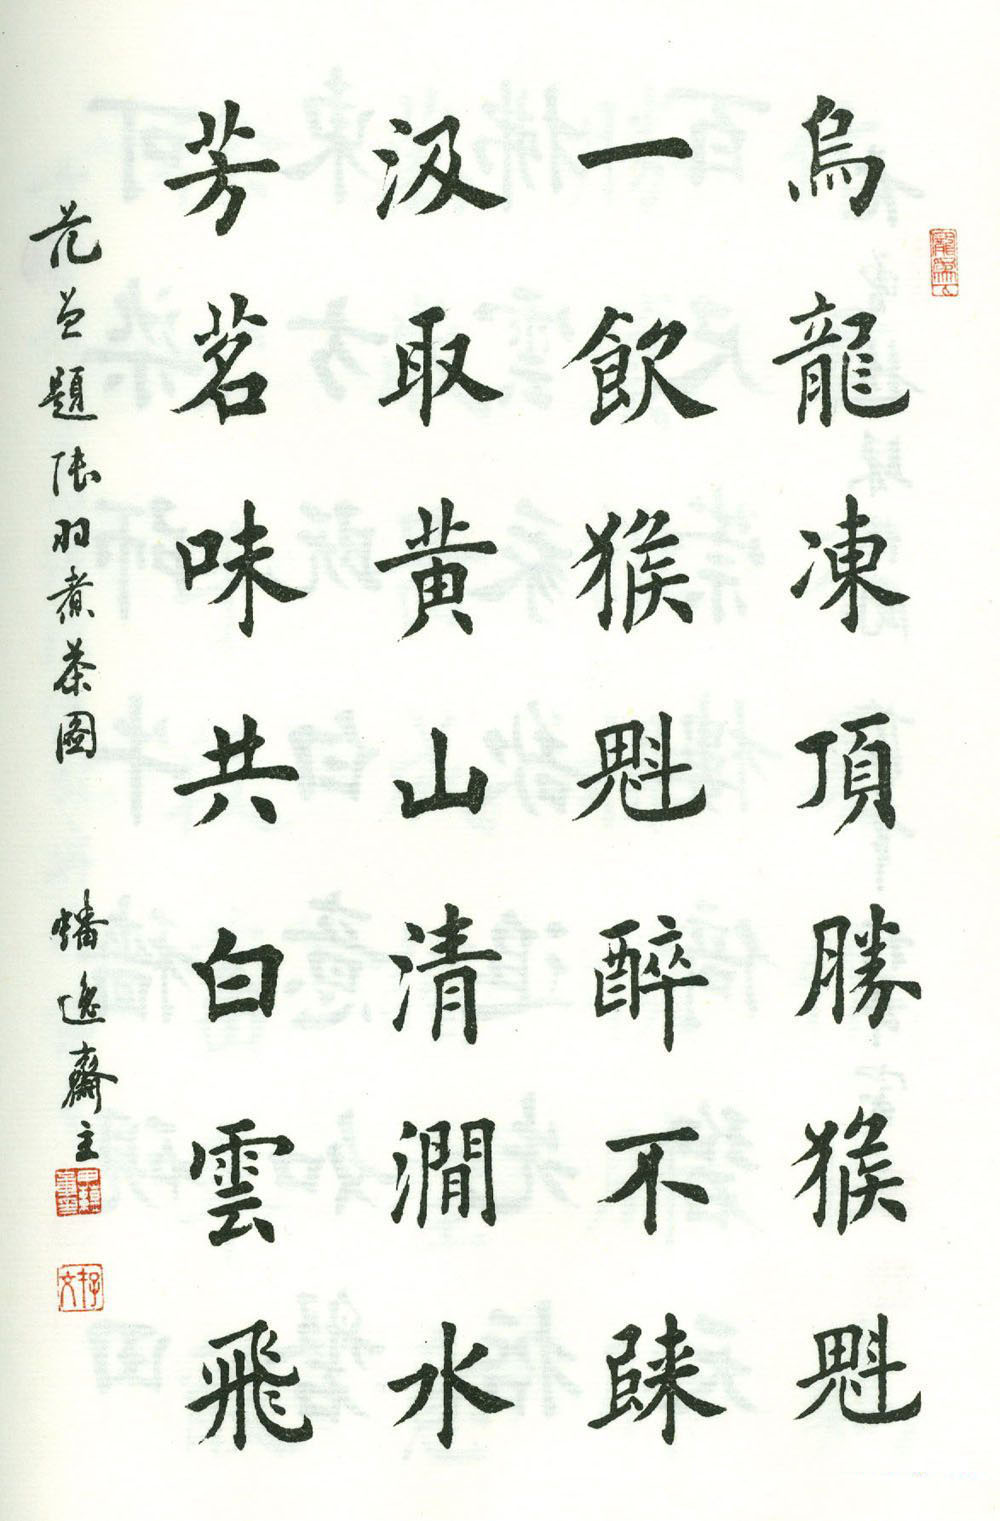 烏龍凍頂勝猴魁
一飲猴魁醉不歸
汲取黄山清澗水
芳茗味共白雲飛
范曾題陸羽煮茶圖 蟠逸齋主